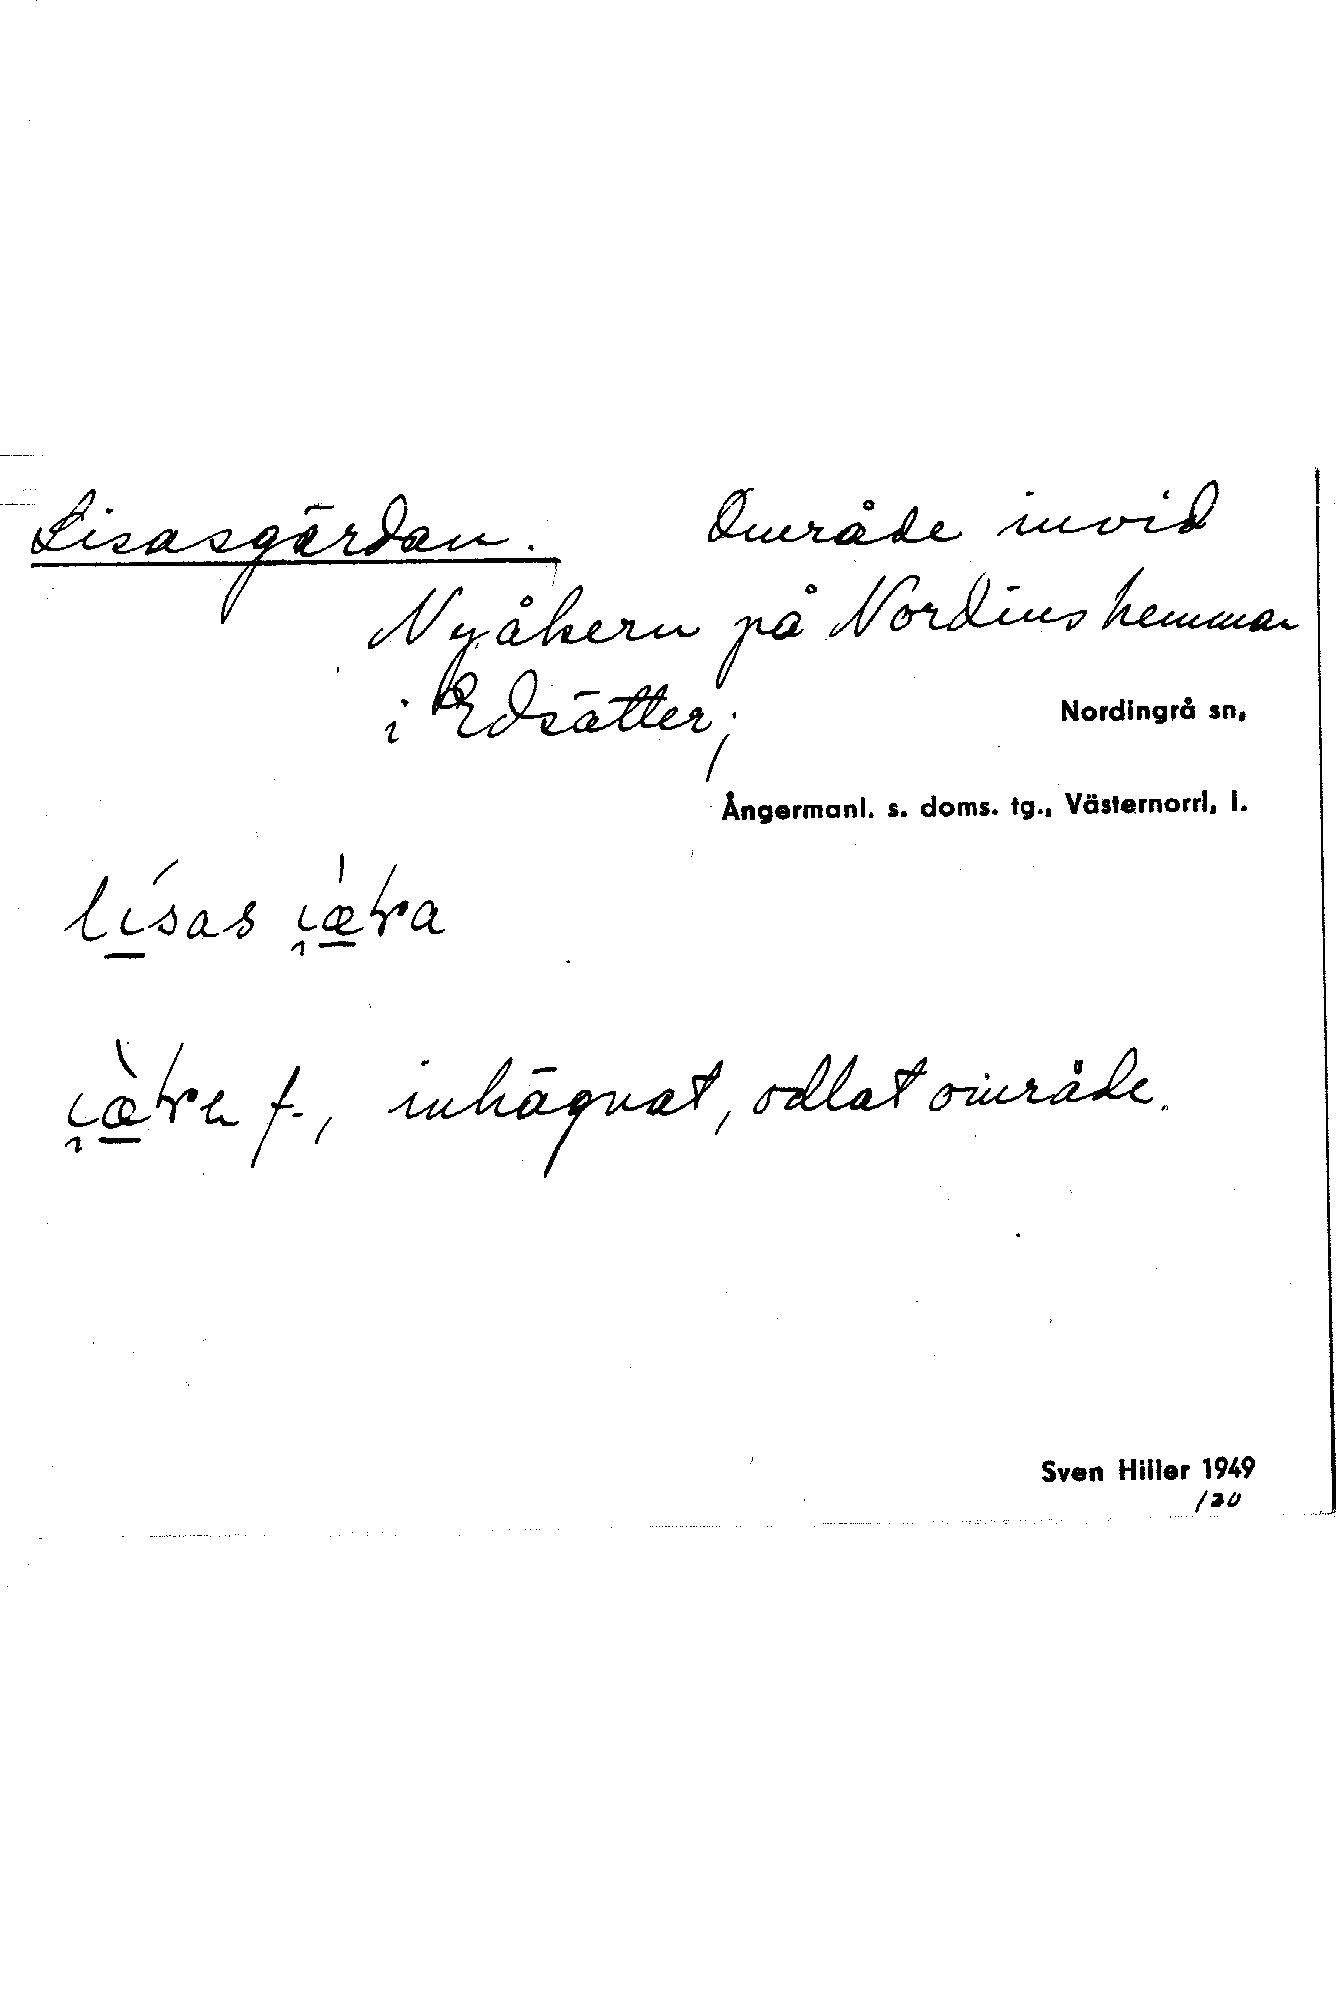 Lisasgärdan. Område invid
Nyåkern på Nordins hemman
i Edsätter;
Nordingrå sn,
Ångermanl. s. doms. tg., Västernorrl, l.
lísas
f., inhägnat, odlat område.
Sven Hiller 1949
/20